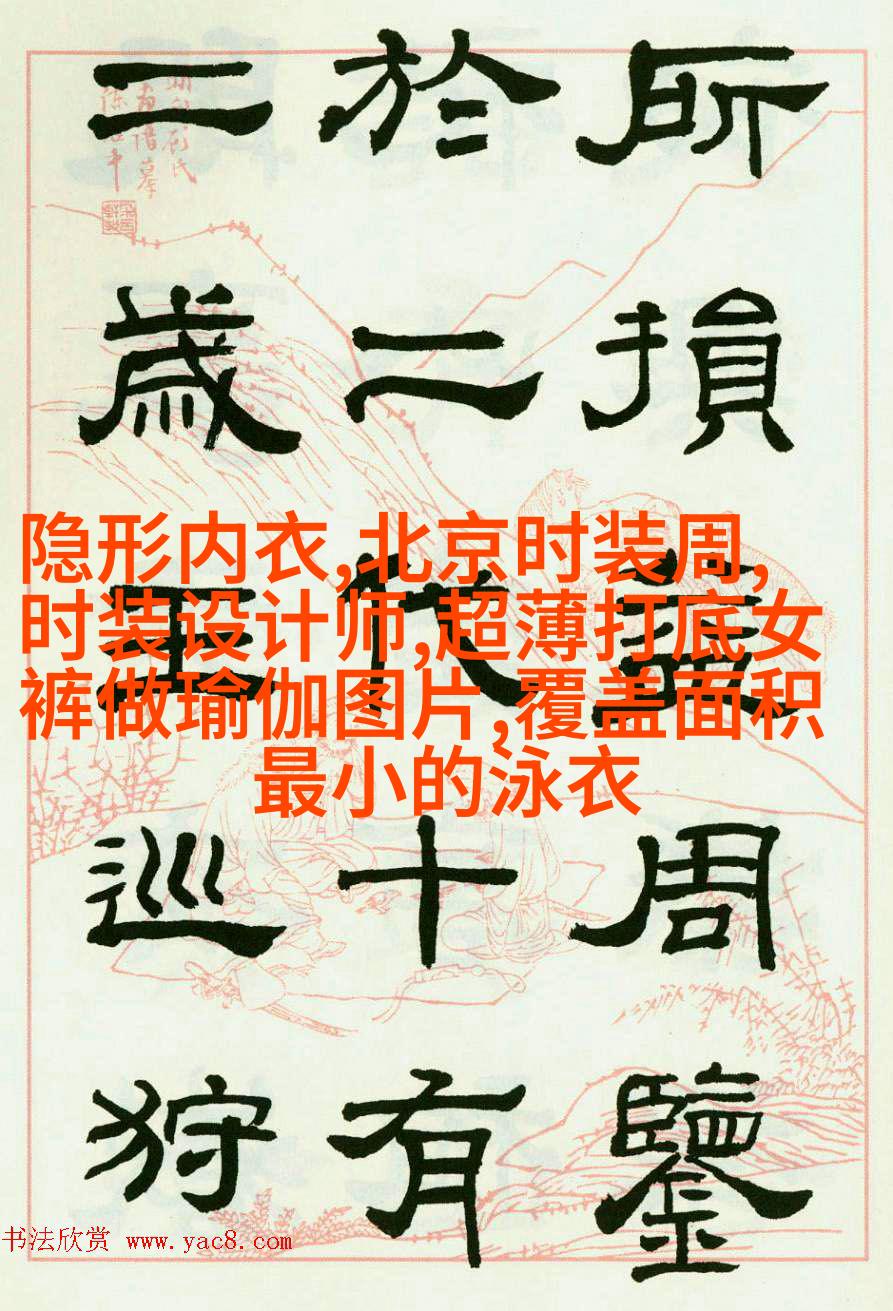 所損益周鑒
於二代十有
二歲王巡狩
隐形内衣,北京时装周,
时装设计师,超薄打底女
裤做瑜伽图片,覆盖面积
最小的泳衣
书法欣赏 www.yac8.com